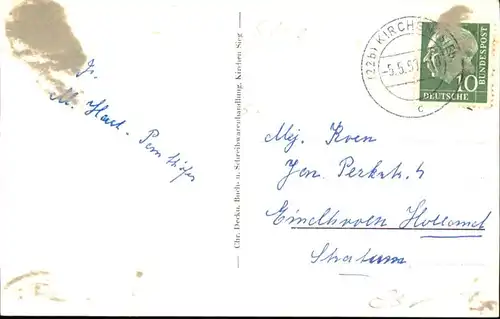 Fr.
M. Hast-
Chr. Decku, Buch- u. Schreibwarenhandlung, Kirchen Sieg
(22b) KIRCHEN
-5.5.5
c
DEUTSCHE BUNDESPOST
10
Mej. Koen
Jan Perkstr. 4
Eindhoven Holland
Stratum